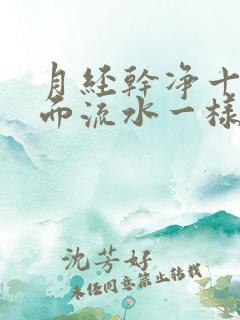 月经幹净十
而流水一樣
沈芳好
未任同意禁止转载